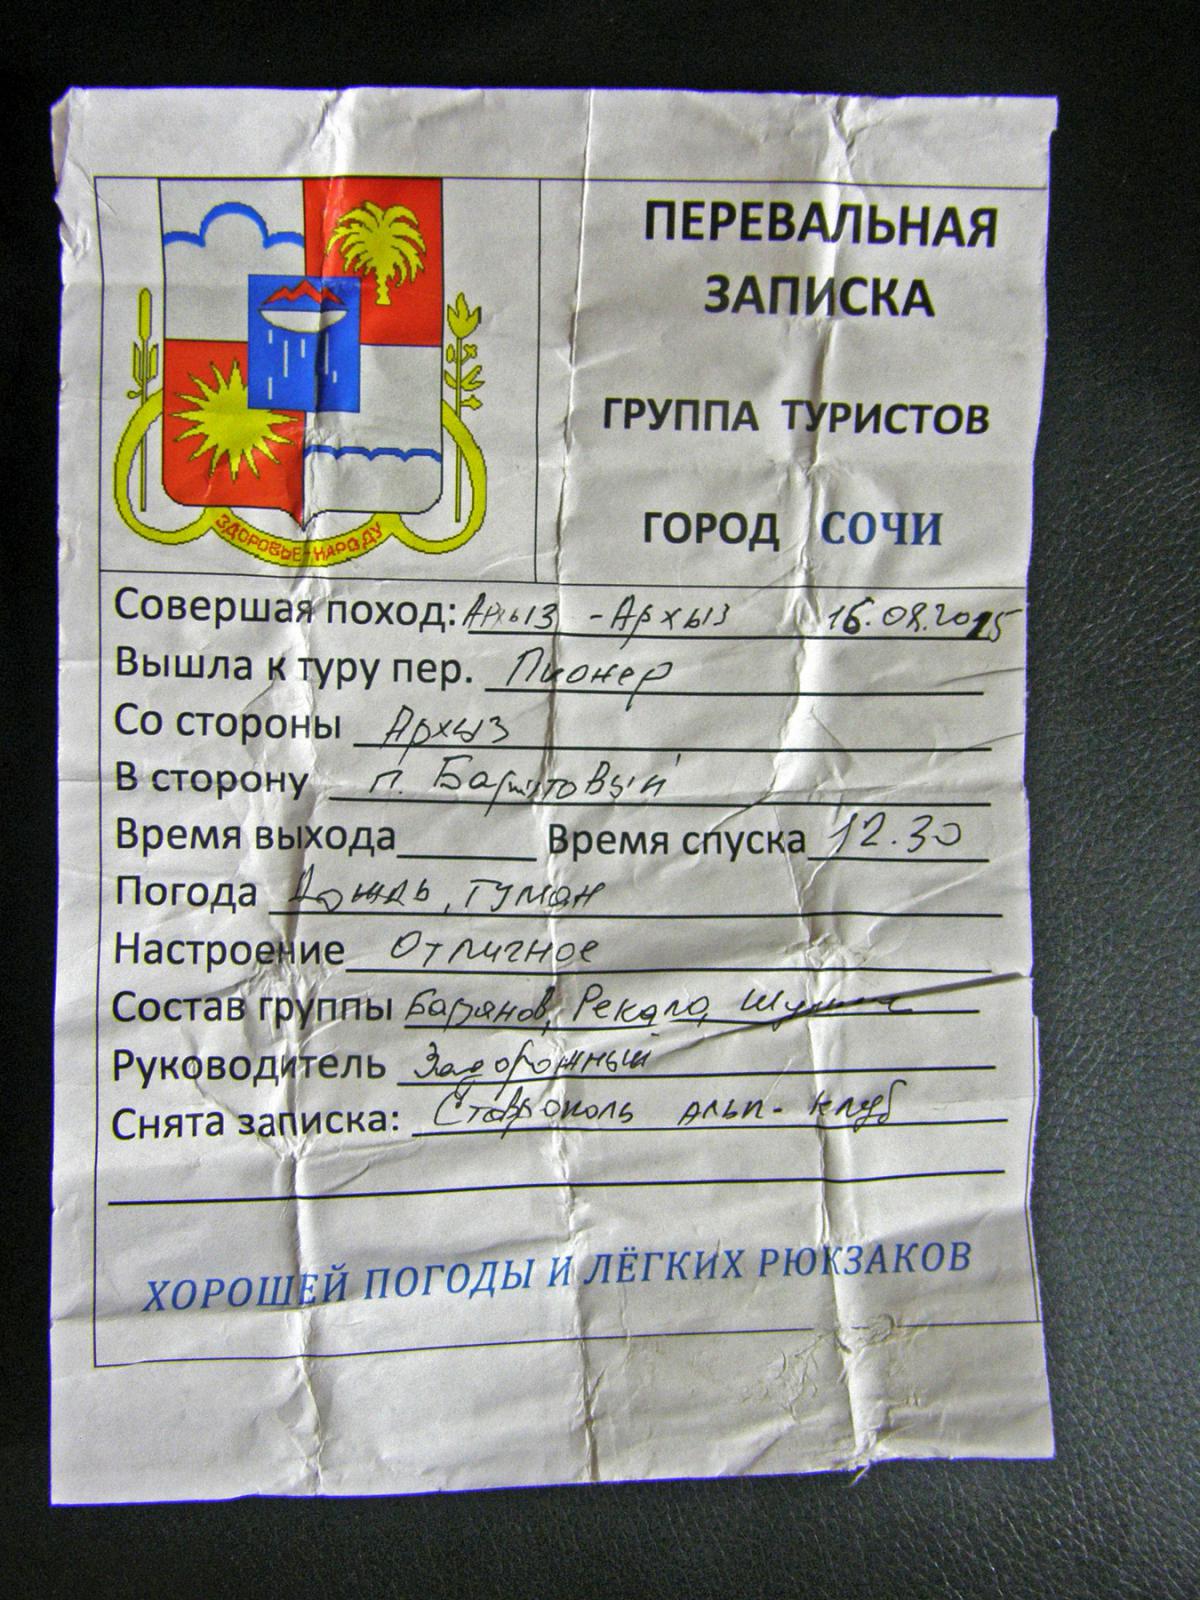 ПЕРЕВАЛЬНАЯ
ЗАПИСКА
ГРУППА ТУРИСТОВ
ГОРОД СОЧИ
ЗДОРОВЬЕ-НАРОДУ
Совершая поход: Архыз - Архыз 16.08.2015
Вышла к туру пер. Пионер
Со стороны Архыз
В сторону п.
Время выхода Время спуска 12.30
Погода Дождь, туман
Настроение Отличное
Состав группы Рекало,
Руководитель Задорожный
Снята записка: Ставрополь альп-клуб
ХОРОШЕЙ ПОГОДЫ И ЛЁГКИХ РЮКЗАКОВ